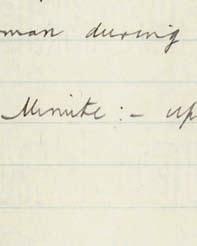 man during
Minute:- up